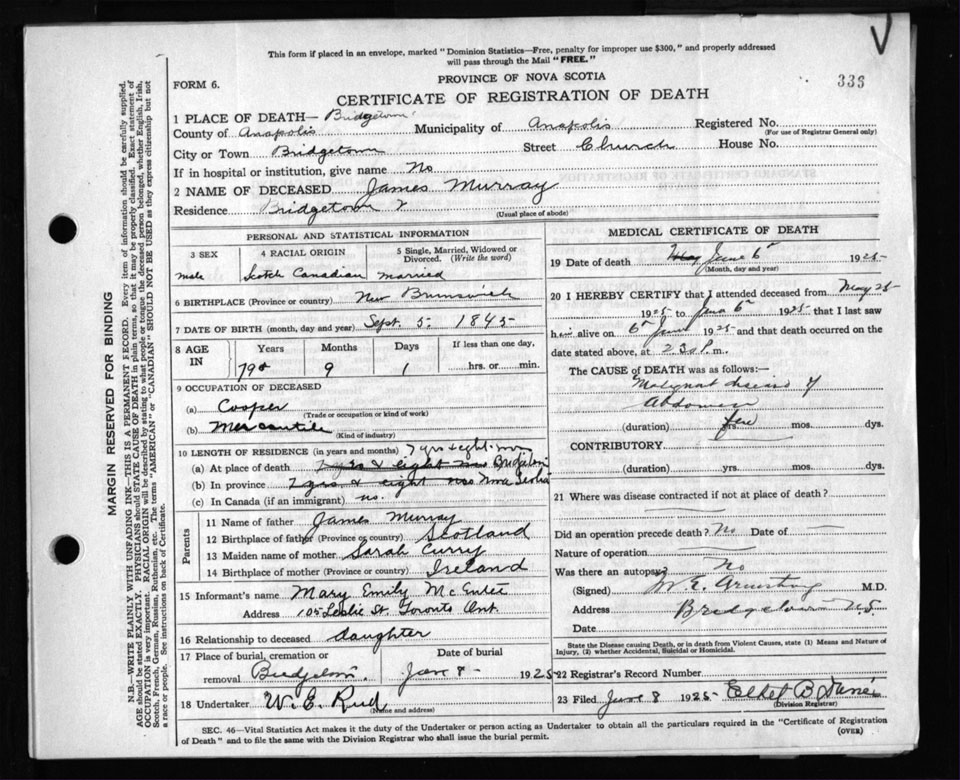 V
This form if placed in an envelope, marked "Dominion Statistics—Free, penalty for improper use $300," and properly addressed
will pass through the Mail "FREE."
FORM 6.
PROVINCE OF NOVA SCOTIA
336
CERTIFICATE OF REGISTRATION OF DEATH
1 PLACE OF DEATH— Bridgetown
County of Anapolis Municipality of Anapolis Registered No.
(For use of Registrar General only)
City or Town Bridgetown Street Church House No.
If in hospital or institution, give name No
2 NAME OF DECEASED James Murray
Residence Bridgetown
(Usual place of abode)
PERSONAL AND STATISTICAL INFORMATION
3 SEX 4 RACIAL ORIGIN 5 Single, Married, Widowed or Divorced. (Write the word)
male Scotch Canadian married
6 BIRTHPLACE (Province or country) New Brunswick
7 DATE OF BIRTH (month, day and year) Sept. 5. 1845
8 AGE IN Years Months Days If less than one day,
79 9 1 hrs. or min.
9 OCCUPATION OF DECEASED
(a) Cooper
(Trade or occupation or kind of work)
(b) Mercantile
(Kind of industry)
10 LENGTH OF RESIDENCE (in years and months) 7 yrs & eight mos
(a) At place of death 7 yrs & eight mos
(b) In province 7 yrs. & eight mos Nova Scotia
(c) In Canada (if an immigrant) no.
Parents
11 Name of father James Murray
12 Birthplace of father (Province or country) Scotland
13 Maiden name of mother Sarah Curry
14 Birthplace of mother (Province or country) Ireland
15 Informant's name Mary Emily McEntee
Address 105 Leslie St. Toronto Ont.
16 Relationship to deceased daughter
17 Place of burial, cremation or Date of burial
removal June 8 1925
18 Undertaker W. E. Reed
(Name and address)
MEDICAL CERTIFICATE OF DEATH
19 Date of death May June 6 1925
(Month, day and year)
20 I HEREBY CERTIFY that I attended deceased from May 25
1925 to June 6 1925 that I last saw
him alive on 6 June 1925 and that death occurred on
date stated above, at 230 P.m.
The CAUSE of DEATH was as follows:—
Malignant disease of
Abdomen
(duration) few yrs. mos. dys.
CONTRIBUTORY
(duration) yrs. mos. dys.
21 Where was disease contracted if not at place of death?
Did an operation precede death? No Date of
Nature of operation
Was there an autopsy? No
(Signed) M.D.
Address Bridgetown NS
Date
State the Disease causing Death, or in death from Violent Causes, state (1) Means and Nature of
Injury, (2) whether Accidental, Suicidal or Homicidal.
22 Registrar's Record Number
23 Filed June 8 1925
(Division Registrar)
SEC. 46—Vital Statistics Act makes it the duty of the Undertaker or person acting as Undertaker to obtain all the particulars required in the "Certificate of Registration
of Death" and to file the same with the Division Registrar who shall issue the burial permit.
(OVER)
MARGIN RESERVED FOR BINDING
N.B.—WRITE PLAINLY WITH UNFADING INK—THIS IS A PERMANENT RECORD. Every item of information should be carefully supplied.
AGE should be stated EXACTLY. PHYSICIANS should STATE CAUSE OF DEATH in plain terms, so that it may be properly classified. Exact statement of
OCCUPATION is very important. RACIAL ORIGIN will be described by stating to what people or tongue the deceased person belonged, whether English, Irish,
Scotch, French, German, Russian, Ruthenian, etc. The terms "AMERICAN" or "CANADIAN" SHOULD NOT BE USED as they express citizenship but not
a race or people. See instructions on back of Certificate.